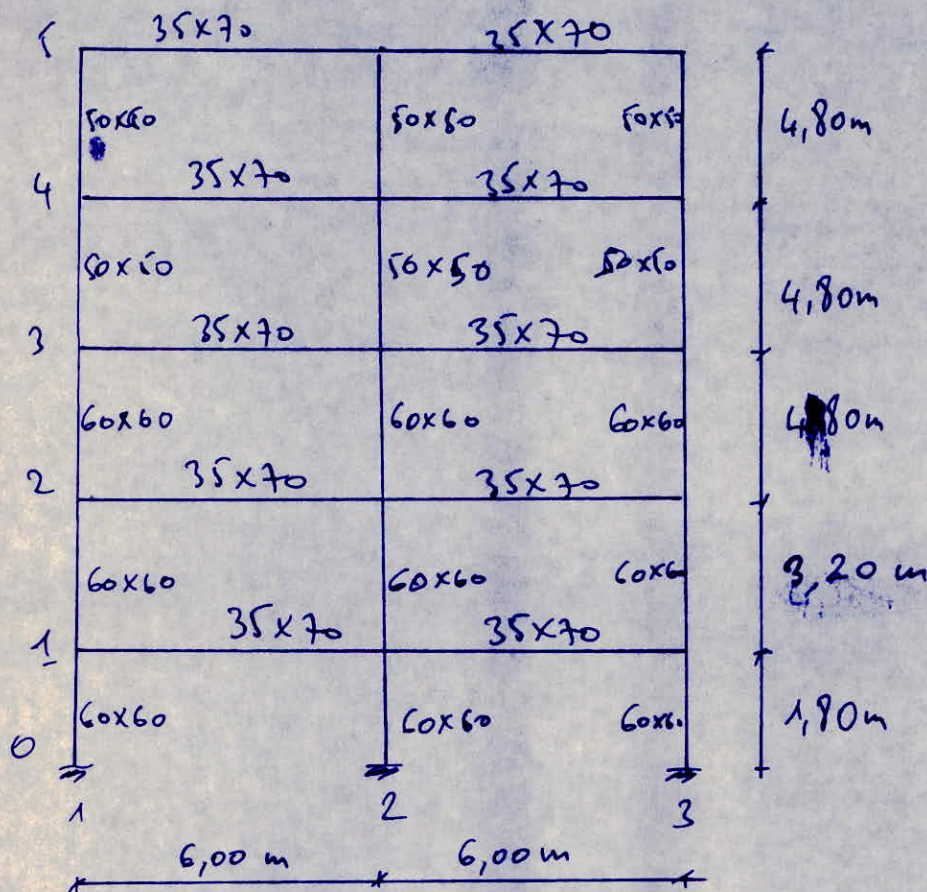 5 35x70 35x70
50x50 50x50 50x50 4,80m
4 35x70 35x70
50x50 50x50 50x50 4,80m
3 35x70 35x70
60x60 60x60 60x60 4,80m
2 35x70 35x70
60x60 60x60 60x6 3,20 m
1 35x70 35x70
60x60 60x60 60x6. 1,80m
0
1 2 3
6,00 m 6,00 m